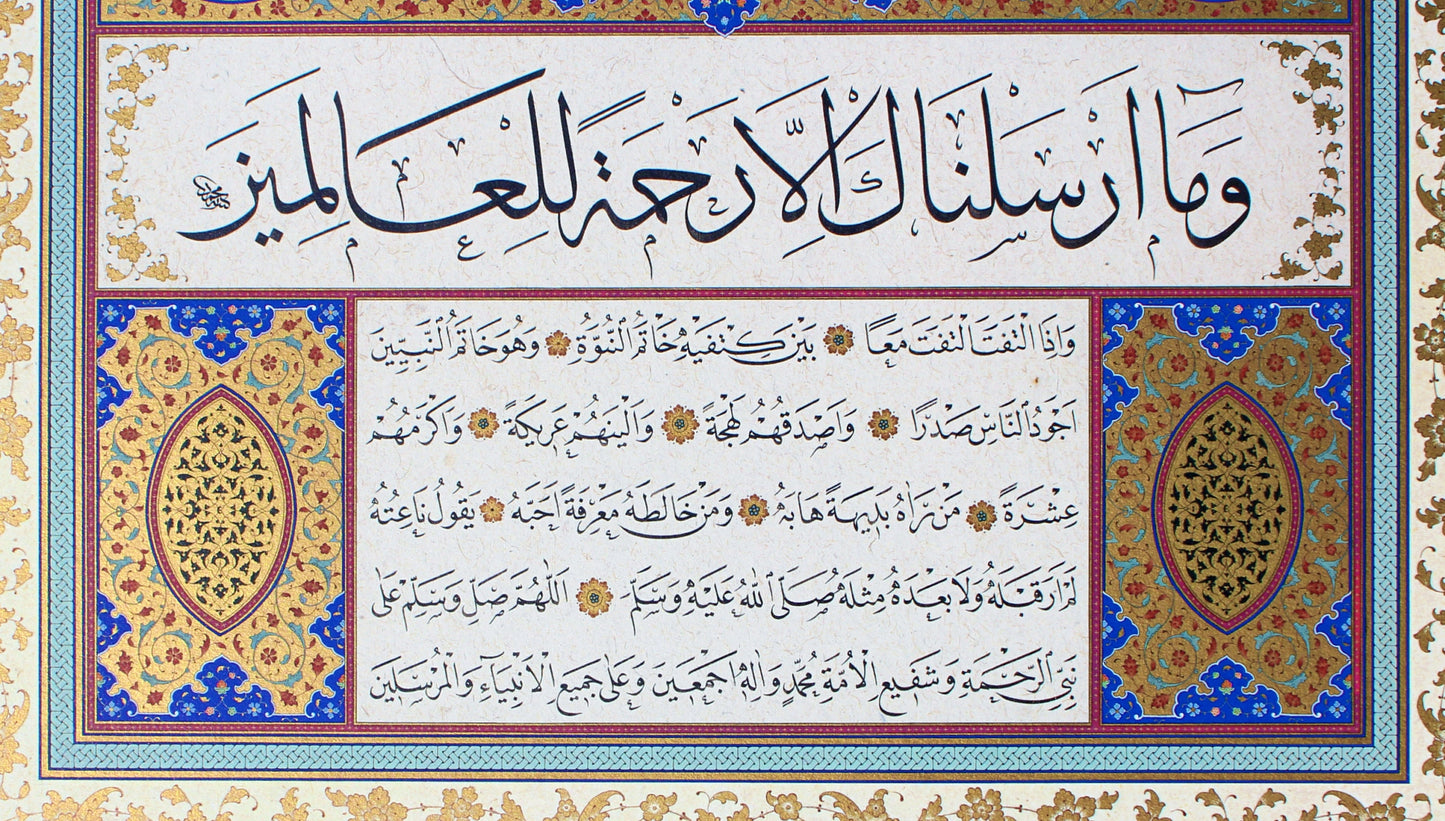 وَمَا اَرْسَلْنَاكَ اِلَّا رَحْمَةً لِلْعَالَمِينَ
وَاِذَا الْتَفَتَ الْتَفَتَ مَعًا بَيْنَ كِتْفَيْهِ خَاتَمُ النُّبُوَّةِ وَهُوَ خَاتَمُ النَّبِيِّينَ
اَجْوَدُ النَّاسِ صَدْرًا وَاَصْدَقُهُمْ لَهْجَةً وَاَلْيَنُهُمْ عَرِيكَةً وَاَكْرَمُهُمْ
عِشْرَةً مَنْ رَاٰهُ بَدِيهَةً هَابَهُ وَمَنْ خَالَطَهُ مَعْرِفَةً اَحَبَّهُ يَقُولُ نَاعِتُهُ
لَمْ اَرَ قَبْلَهُ وَلَا بَعْدَهُ مِثْلَهُ صَلَّى اللهُ عَلَيْهِ وَسَلَّمَ اَللّٰهُمَّ صَلِّ وَسَلِّمْ عَلٰى
نَبِيِّ الرَّحْمَةِ وَشَفِيعِ الْاُمَّةِ مُحَمَّدٍ وَاٰلِهِ اَجْمَعِينَ وَعَلٰى جَمِيعِ الْاَنْبِيَاءِ وَالْمُرْسَلِينَ